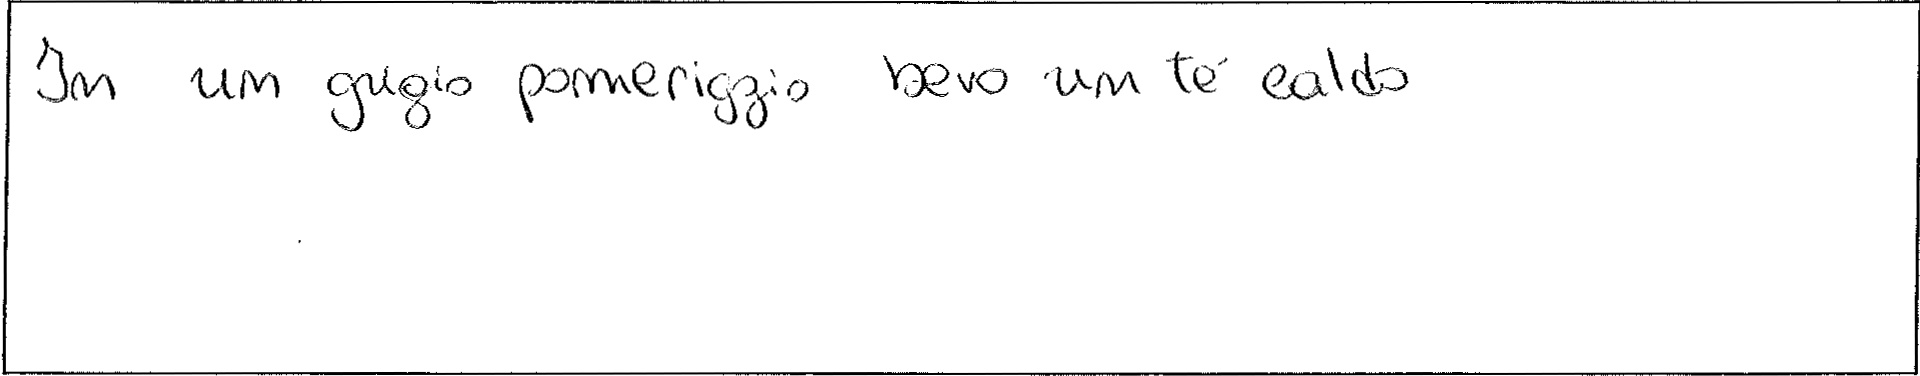 In un grigio pomeriggio bevo un té caldo